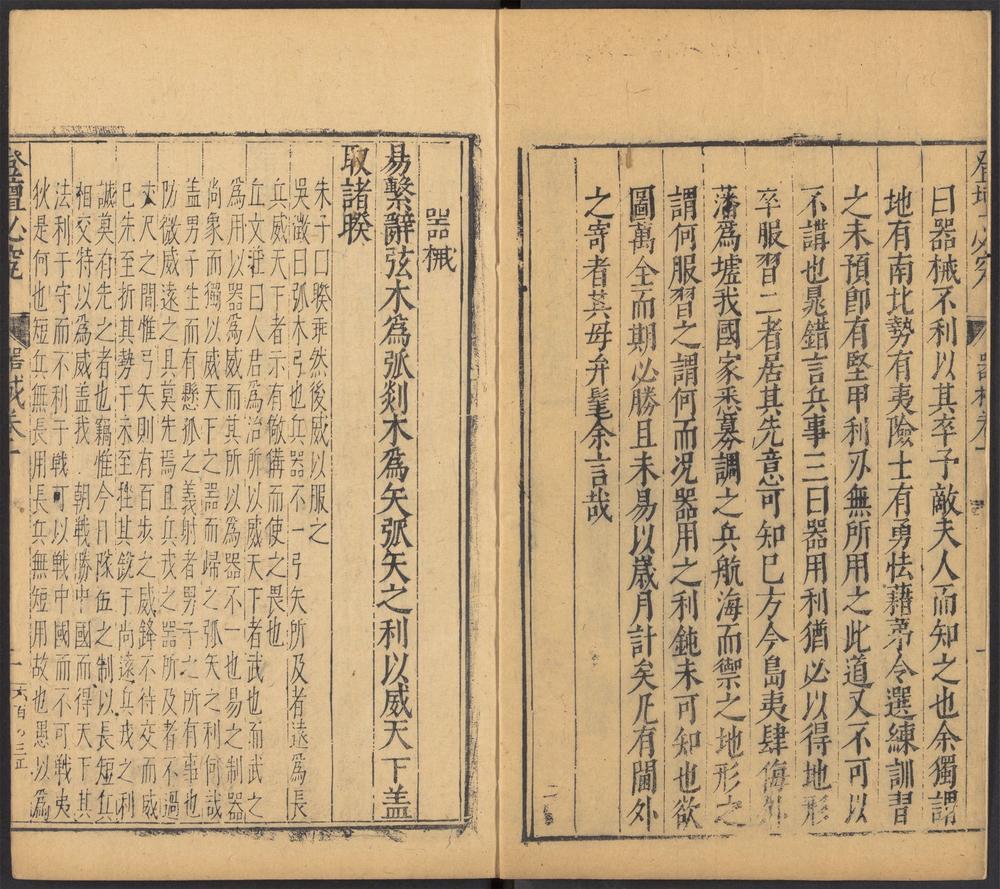 登壇必究
器械卷一
一
曰器械不利以其卒予敵夫人而知之也余獨謂
地有南北勢有夷險士有勇怯藉苐令選練訓習
之未預卽有堅甲利刃無所用之此道又不可以
不講也晁錯言兵事三曰器用利猶必以得地形
卒服習二者居其先意可知巳方今島夷肆侮外
藩爲墟我國家悉募調之兵航海而禦之地形之
謂何服習之謂何而况器用之利鈍未可知也欲
圖萬全而期必勝且未易以歲月計矣凡有閫外
之寄者其毋弁髦余言哉
二
器械
易繫辭弦木爲弧剡木爲矢弧矢之利以威天下盖
取諸睽
朱子曰睽乖然後威以服之
吳澂曰弧木弓也兵器不一弓矢所及者遠爲長
兵威天下者示有儆備而使之畏也
丘文莊曰人君爲治所以威天下者武也而武之
爲用以器爲威而其所以爲器不一也易之制器
尚象而獨以威天下之器而歸之弧矢之利何哉
盖男子生而有懸弧之義射者男子之所有事也
防微威遠之具莫先焉且兵戎之器所及者不過
丈尺之間惟弓矢則有百步之威鋒不待交而威
巳先至折其勢于未至挫其銳于尚遠兵戎之利
誠莫有先之者也竊惟今日隊伍之制以長短兵
相交特以爲威盖我 朝戰勝中國而得天下其
法利于守而不利于戰可以戰中國而不可戰夷
狄是何也短兵無長用長兵無短用故也愚以爲
登壇必究
器械卷一
一
六百〇三正